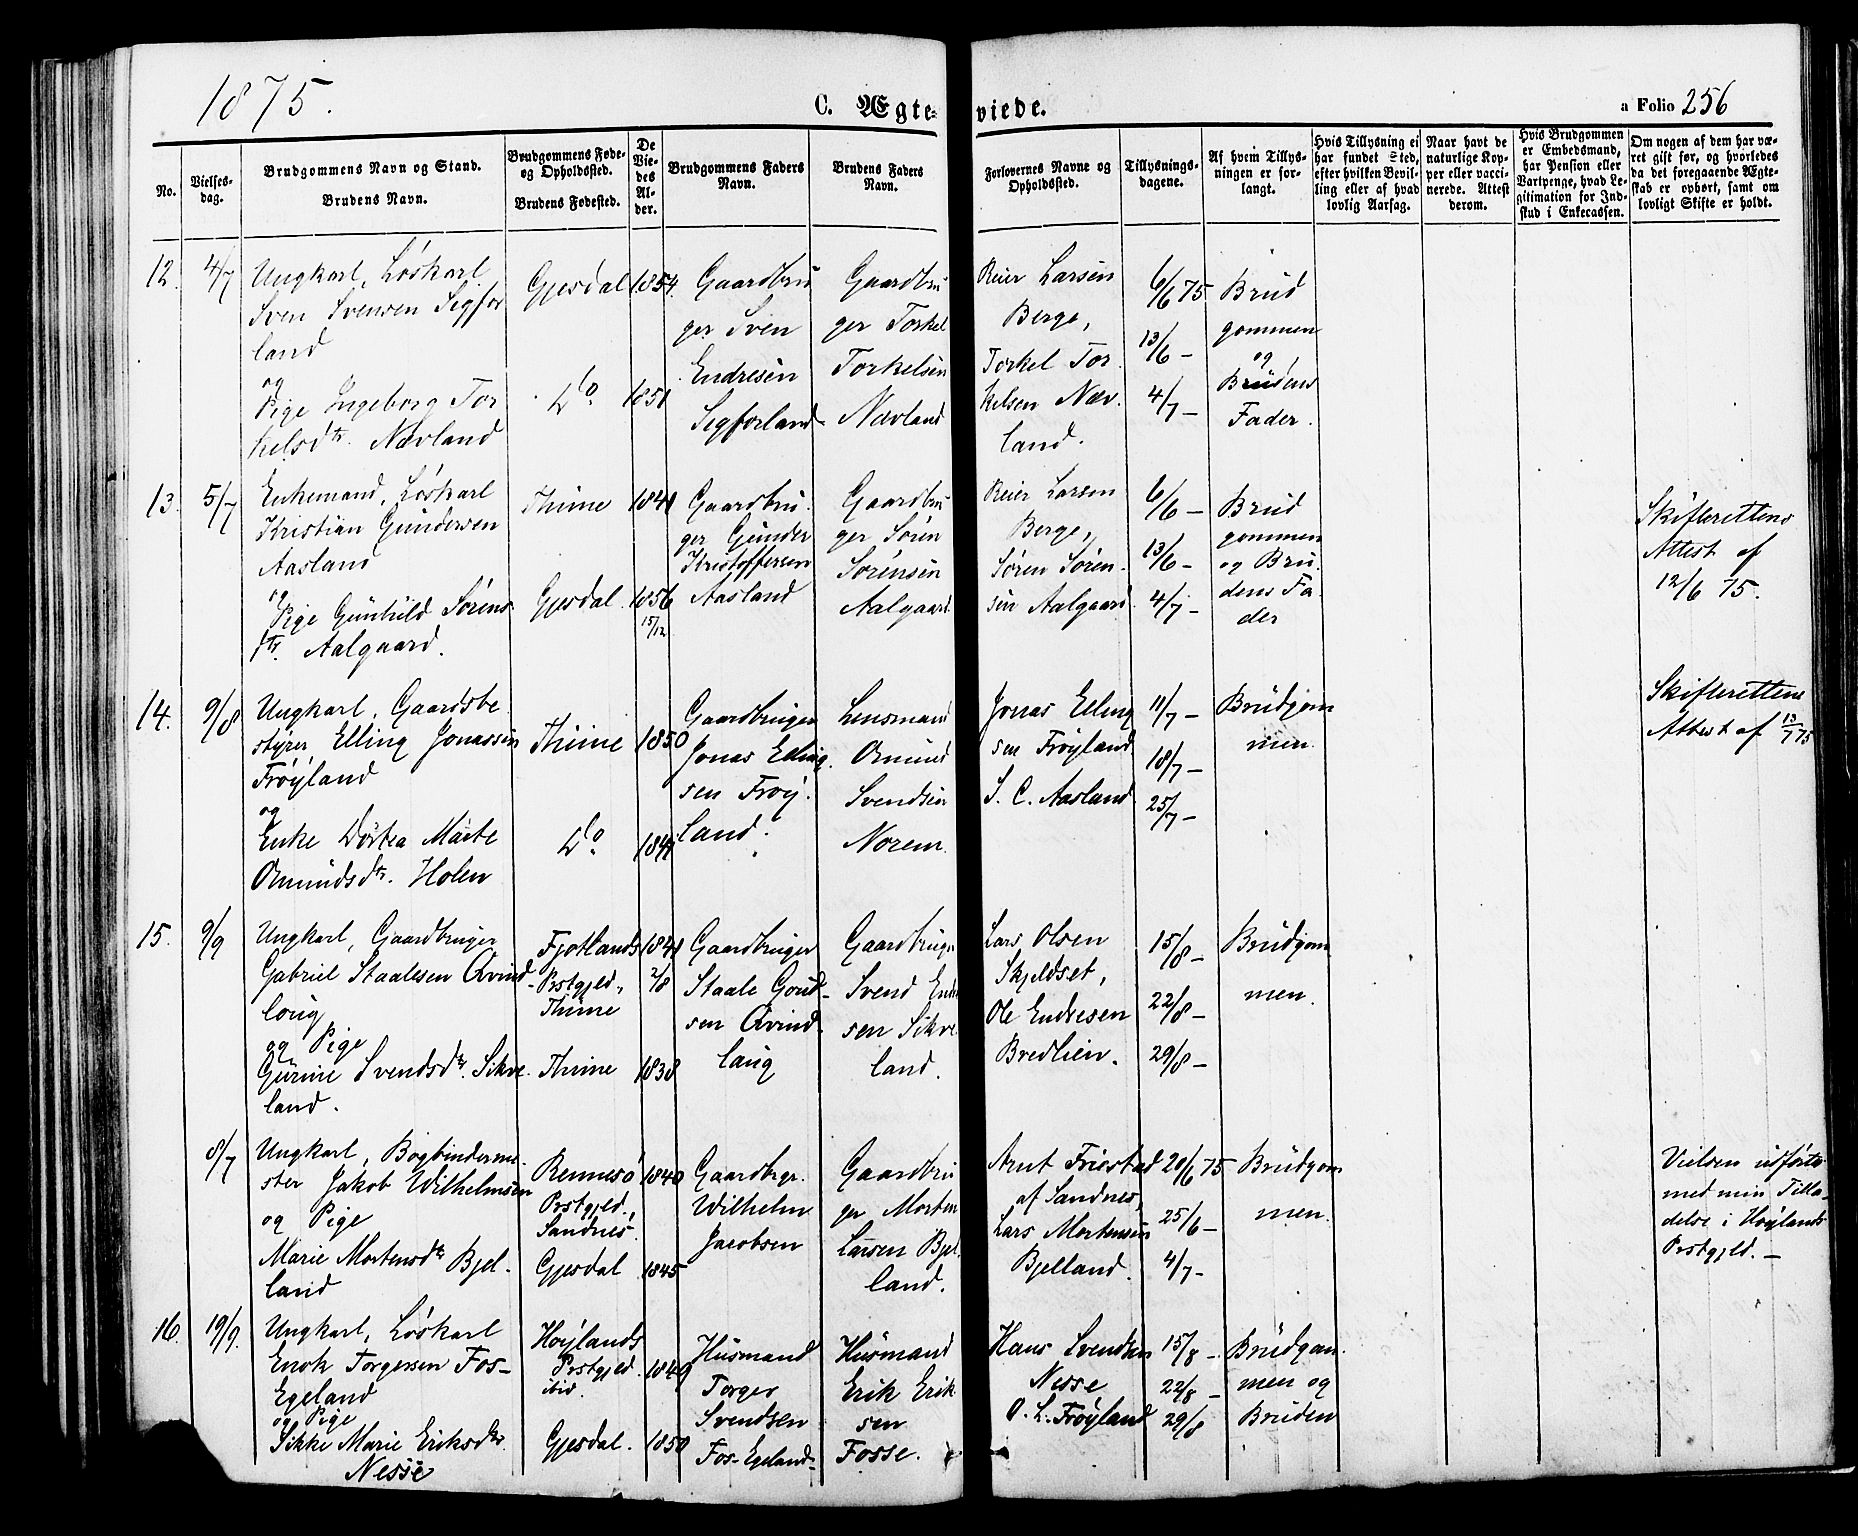 1875.
C. Ægteviede.
a Folio 256
No.
Vielsesdag.
Brudgommens Navn og Stand.
Brudens Navn.
Brudgommens Føde-
og Opholdssted.
Brudens Fødested.
De
Vie-
des
Al-
der.
Brudgommens Faders
Navn.
Brudens Faders
Navn.
Forlovernes Navne og
Opholdssted.
Tillysnings-
dagene.
Af hvem Tillys-
ningen er for-
langt.
Hvis Tillysning ei
har fundet Sted,
efter hvilken Bevil-
ling eller af hvad
lovlig Aarsag.
Naar havt de
naturlige Kop-
per eller vacci-
nerede. Attest
derom.
Hvis Brudgommen
er Embedsmand,
har Pension eller
Vartpenge, hvad Le-
gitimation for Ind-
skud i Enkecassen.
Om nogen af dem har væ-
ret gift før, og hvorledes
da det foregaaende Ægte-
skab er ophørt, samt om
lovligt Skifte er holdt.
12. 4/7
Ungkarl, Løskarl
Sven Svensen Segfor
land
og
Pige Ingeborg Tor
kelsdtr. Nævland
Gjesdal 1854.
Do. 1851
Gaardbru
ger Sven
Endresen
Segforland
Gaardbru
ger Torkel
Torkelsen
Nævland
Reier Larsen
Berge,
Torkel Tor
kelsen Næv.
land.
6/6 75
13/6 -
4/7 -
Brud
gommen
og
Brudens
Fader.
13. 5/7
Enkemand, Løskarl
Kristian Gundersen
Aasland
og
Pige Gunhild Sørens
dtr. Aalgaard.
Thime 1841
Gjesdal. 1856
15/12
Gaardbru.
ger Gunder
Kristoffersen
Aasland
Gaardbru
ger Søren
Sørensen
Aalgaard.
Reier Larsen
Berge,
Søren Søren-
sen Aalgaard.
6/6 -
13/6 -
4/7 -
Brud
gommen
og Bru.
dens Fa.
der
Skifterettens
Attest af
12/6 75.
14. 9/8
Ungkarl, Gaardsbe.
styrer Elling Jonassen
Frøyland
og
Enke Dortea Marte
Omundsdtr. Holen
Thime 1850
Do.
Gaardbruger
Jonas Elling.
sen Frøy.
land.
Lensmand
Omund
Svendsen
Norem.
Jonas Elling
sen Frøyland
S. C. Aasland
11/7 -
18/7 -
25/7 -
Brudgom
men.
Skifterettens
Attest af 13/7 75
15. 9/9
Ungkarl, Gaardbruger
Gabriel Staalesen Qvind
laug
og Pige
Gurine Svendsdtr. Sikve.
land.
Fjotlands 1841
Prstgjeld, 2/8
Thime
Thime 1838
Gaardbruger
Staale Goud-
sen Qvind-
laug
Gaardbruger
Svend End
sen Sikve
land.
Lars Olsen
Skjeldset,
Ole Endresen
Bredlien.
15/8 -
22/8 -
29/8 -
Brudgom
men.
8/7
Ungkarl, Bogbinderme.
ster Jakob Wilhelmsen
og Pige
Marie Mortensdtr. Bjel.
land
Rennesø 1840
Prstgjeld.,
Sandnes.
Gjesdal 1845
Gaardbrgr.
Wilhelm
Jacobsen
Gaardbru
ger Morten
Larsen Bjel
land.
Arnt Friestad
af Sandnes,
Lars Mortensen
Bjelland.
20/6 75
25/6 -
4/7 -
Brudgom
men.
Vielsen udført
med min Tilla-
delse i Høylands
Prstgjeld. -
16. 19/9
Ungkarl, Løskarl
Enok Torgersen Fos-
Egeland
og Pige
Sikke Marie Eriksdtr.
Nesse
Høylands
Prstgjeld. 1849
ibid.
Gjesdal. 1850
Husmand
Torger
Svendsen
Fos-Egeland-
Husmand
Erik Erik
sen
Fosse.
Hans Svendsen
Nesse
O. L. Frøyland
15/8 -
22/8 -
29/8
Brudgom.
men og
Bruden